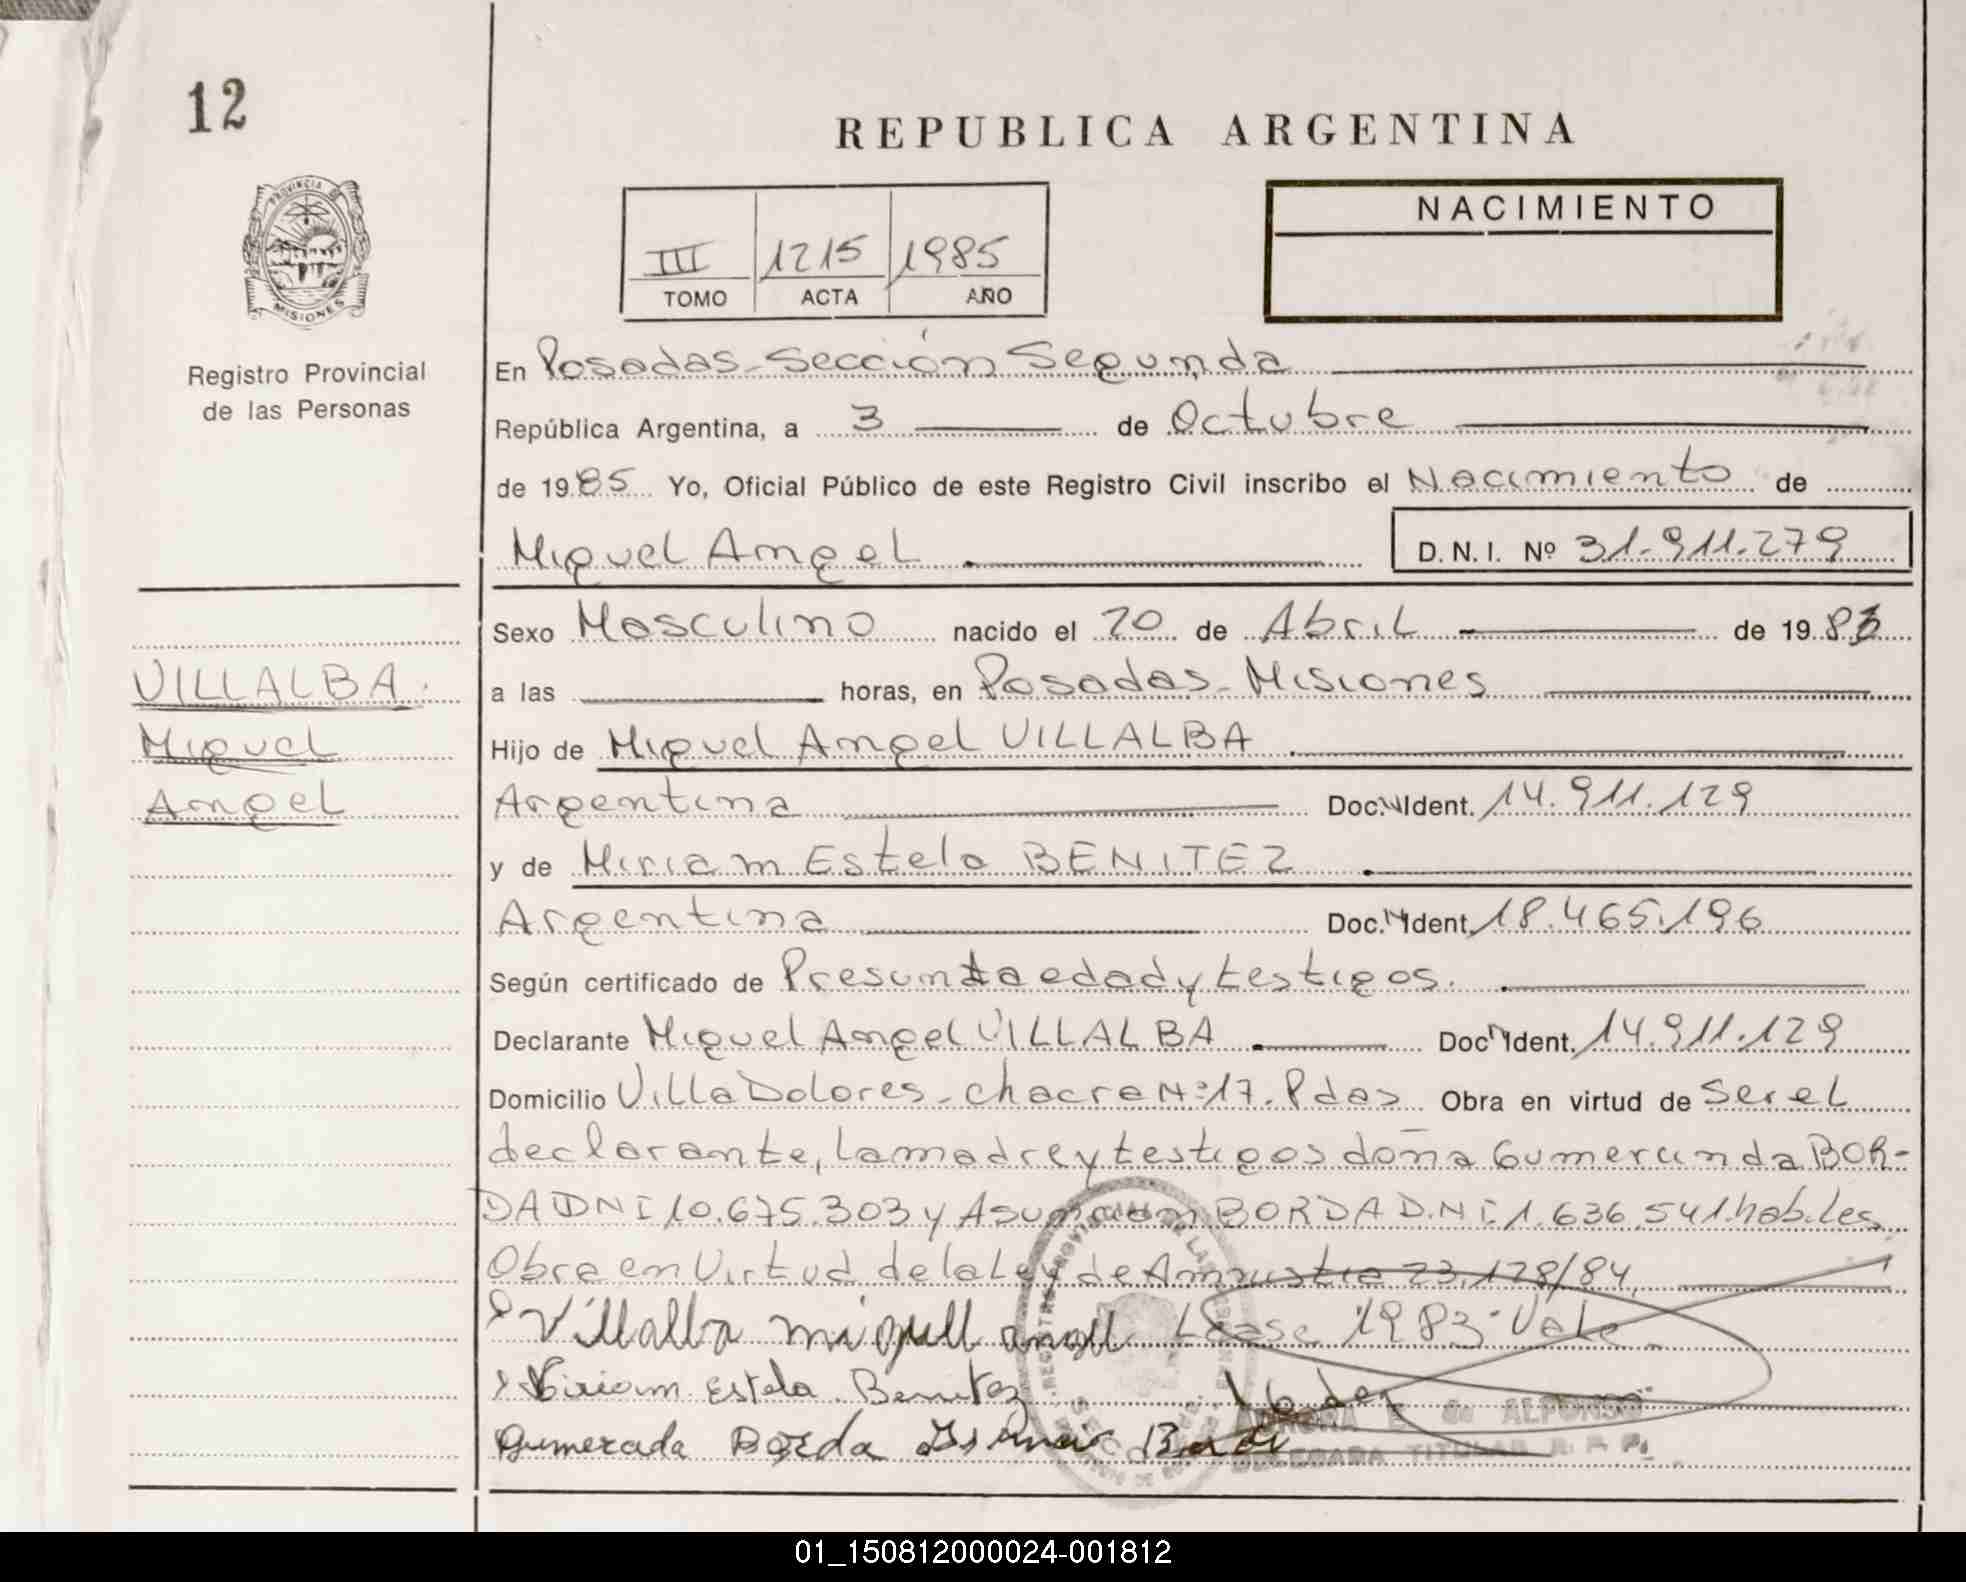 12
REPUBLICA ARGENTINA
PROVINCIA DE
MISIONES
Registro Provincial
de las Personas
III 1215 1985
TOMO ACTA AÑO
NACIMIENTO
En Posadas - Sección Segunda
República Argentina, a 3 de Octubre
de 1985 Yo, Oficial Público de este Registro Civil inscribo el Nacimiento de
Miguel Angel D.N.I. Nº 31.911.279
Sexo Masculino nacido el 20 de Abril de 1983
VILLALBA.
Miguel
Angel
a las horas, en Posadas - Misiones
Hijo de Miguel Angel VILLALBA
Argentina Doc. Ident. 14.911.129
y de Miriam Estela BENITEZ
Argentina Doc. Ident. 18.465.196
Según certificado de Presunta edad y testigos.
Declarante Miguel Angel VILLALBA Doc. Ident. 14.911.129
Domicilio Villa Dolores - chacra Nº 17. Pdas Obra en virtud de Ser el
declarante, la madre y testigos doña Gumercinda BOR-
DA DNI 10.675.303 y Asunción BORDA D.N.I. 1.636.541. hábiles
Obra en Virtud de la Ley de Amnistia 23.128/84
Villalba miguel angel Léase 1983 - Vale
Miriam Estela Benitez
Gumercada Borda
AURORA E. de ALFONSO
DELEGADA TITULAR R. P. P.
01_150812000024-001812